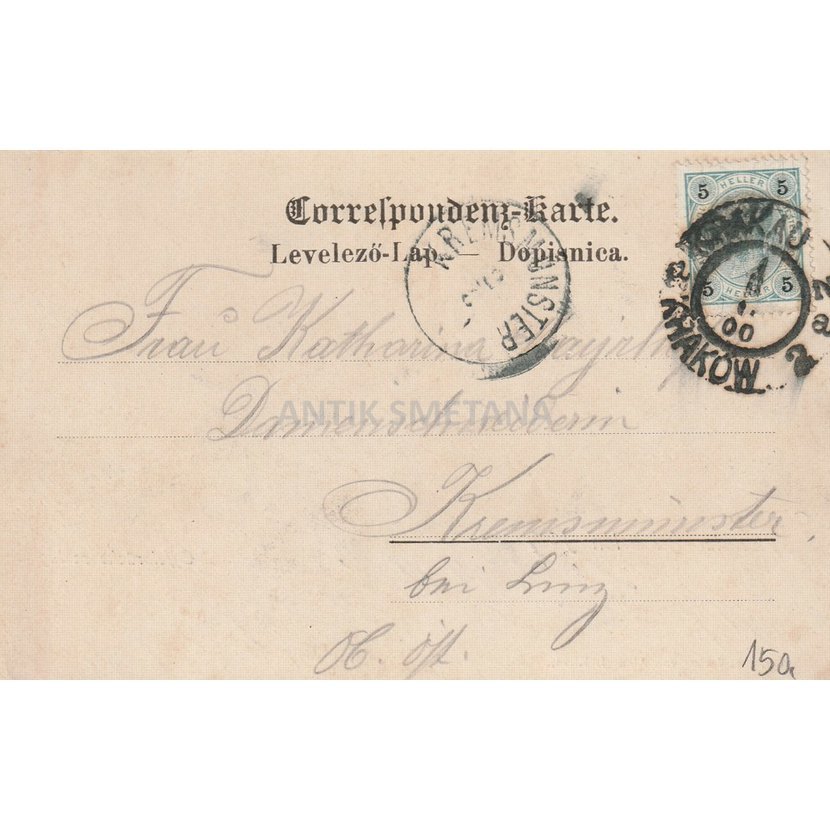 Correspondenz-Karte.
Levelező-Lap. — Dopisnica.
5 HELLER 5
5 HELLER 5
KRAKAU
1
00
KRAKÓW
2a
KREMSMÜNSTER
Frau Katharina
ANTIK SMETANA
Kremsmünster
bei Linz
Ob. Öst.
150,